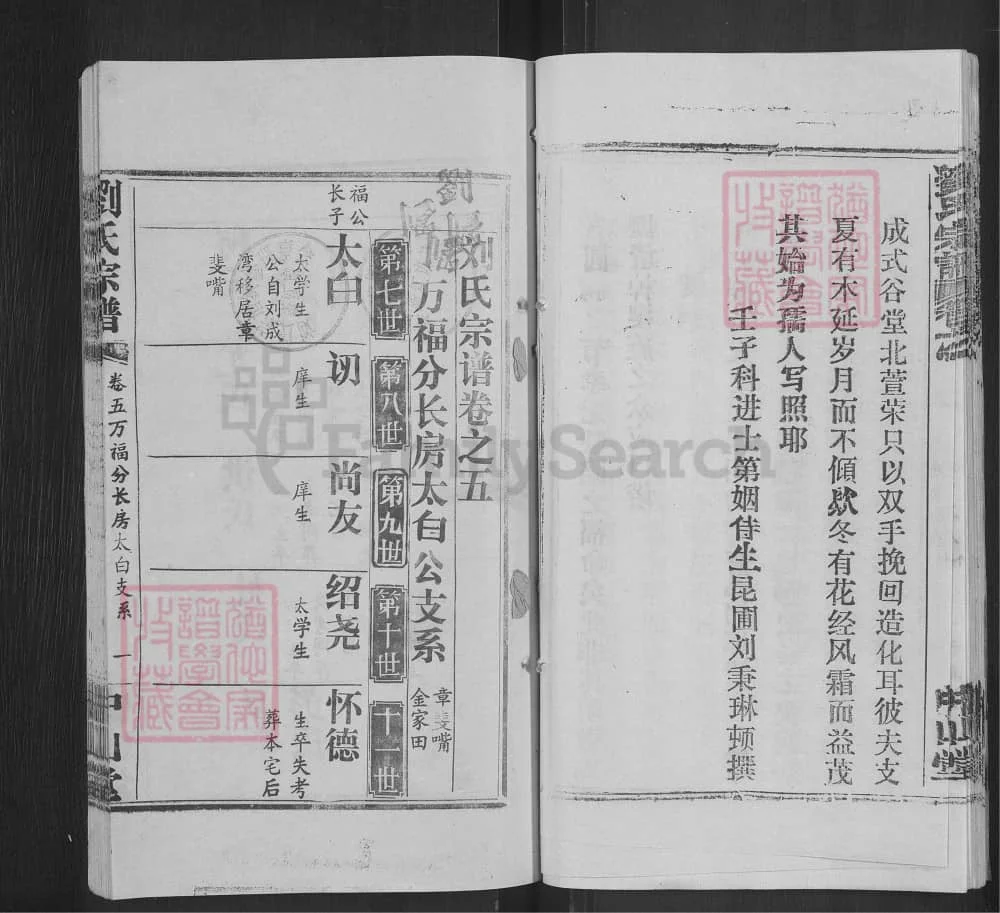 成式谷堂北萱荣只以双手挽回造化耳彼夫支
夏有木延岁月而不傾歘冬有花经风霜而益茂
其始为孺人写照耶
壬子科进士第姻侍生昆圃刘秉琳顿撰
中山堂
刘氏宗谱卷之五
万福分长房太白公支系
章斐嘴
金家田
第七世
第八世
第九世
第十世
十一世
福公
长子
太白
太学生
公自刘成
湾移居章
斐嘴
讱
庠生
尚友
庠生
绍尧
太学生
怀德
生卒失考
葬本宅后
劉氏宗譜
卷五万福分长房太白支系
一
中山堂
譜學會
收藏
FamilySearch